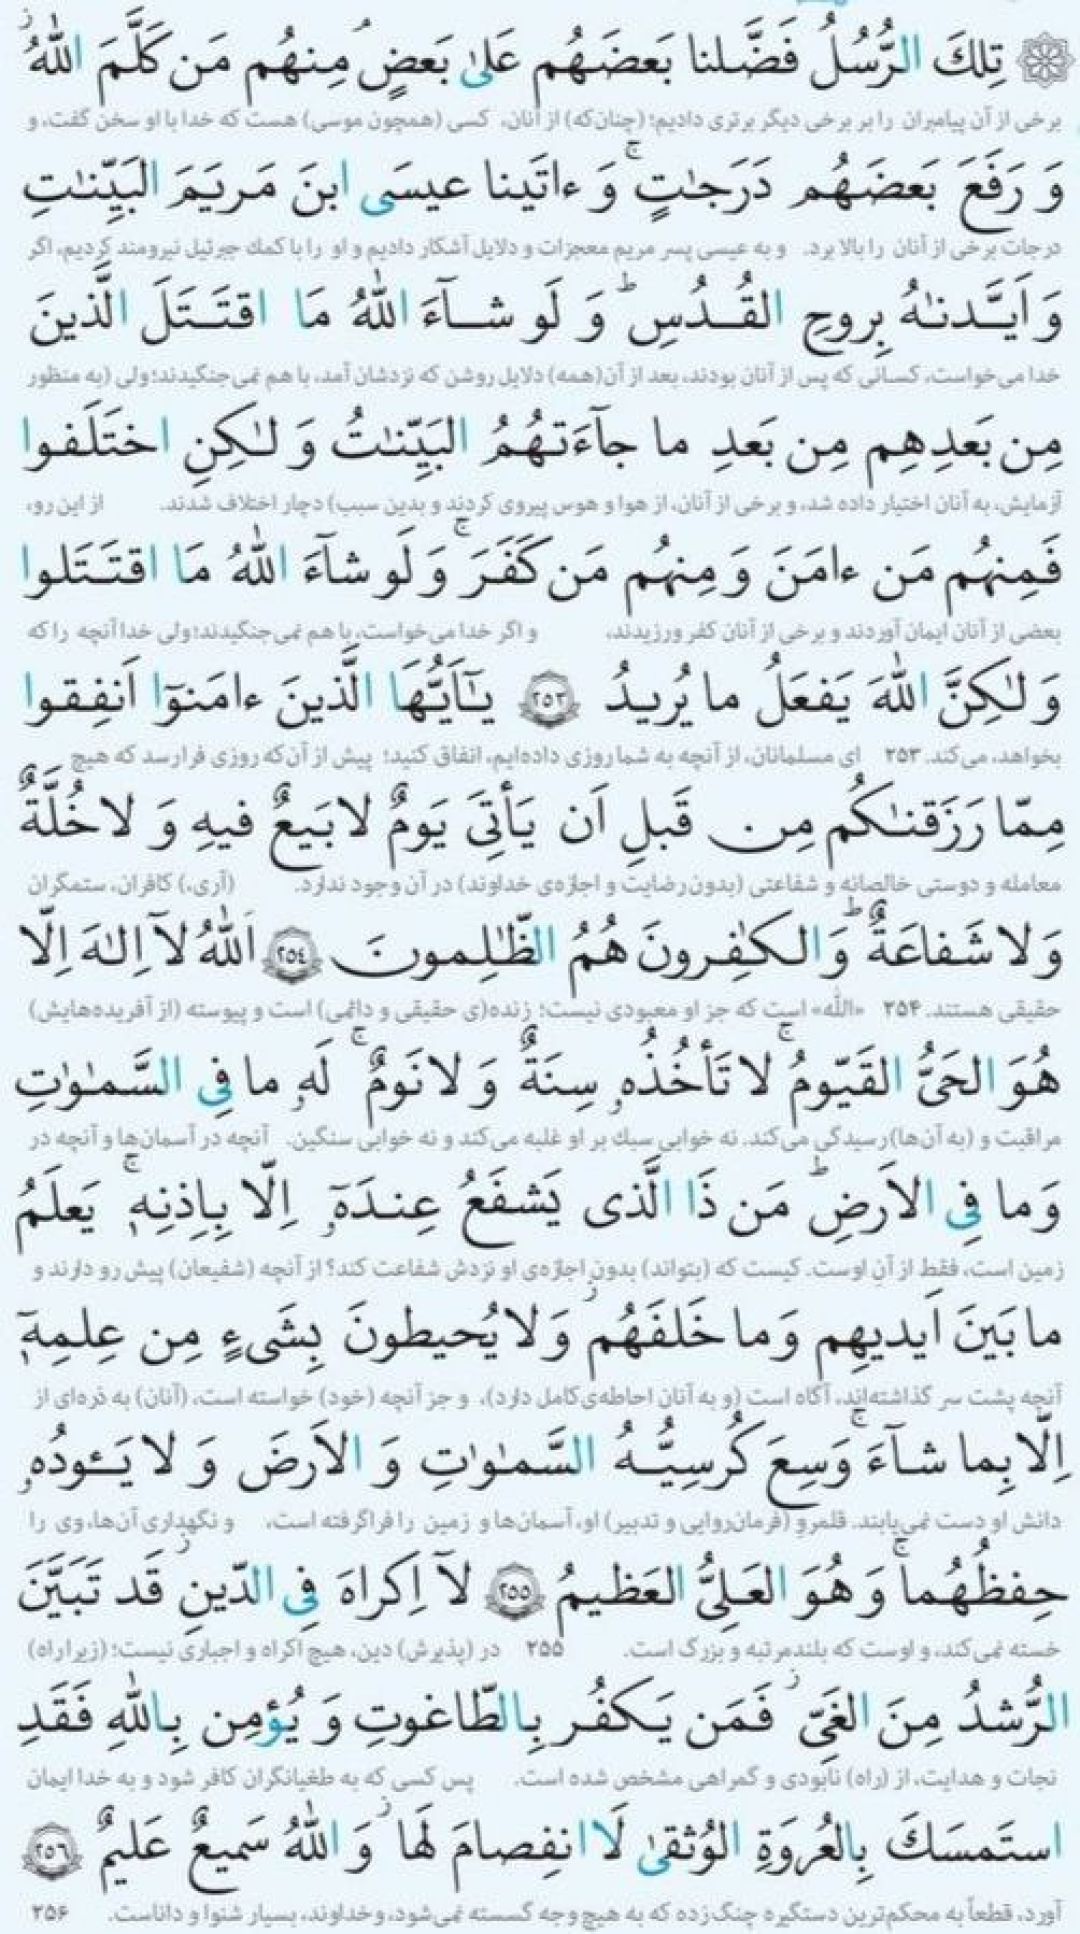 تِلكَ الرُّسُلُ فَضَّلنا بَعضَهُم عَلىٰ بَعضٍ مِنهُم مَن كَلَّمَ اللّٰهُ
برخی از آن پیامبران را بر برخی دیگر برتری دادیم؛ (چنان‌که) از آنان، کسی (همچون موسی) هست که خدا با او سخن گفت، و
وَ رَفَعَ بَعضَهُم دَرَجٰتٍ ۚ وَ ءاتَینا عیسَی ابنَ مَریَمَ البَیِّنٰتِ
درجات برخی از آنان را بالا برد. و به عیسی پسر مریم معجزات و دلایل آشکار دادیم و او را با کمك جبرئیل نیرومند کردیم، اگر
وَ اَیَّدنٰهُ بِروحِ القُدُسِ ؕ وَ لَو شآءَ اللّٰهُ مَا اقتَتَلَ الَّذینَ
خدا می‌خواست، کسانی که پس از آنان بودند، بعد از آن (همه) دلایل روشن که نزدشان آمد، با هم نمی‌جنگیدند؛ ولی (به منظور
مِن بَعدِهِم مِن بَعدِ ما جآءَتهُمُ البَیِّنٰتُ وَ لٰکِنِ اختَلَفوا
آزمایش، به آنان اختیار داده شد، و برخی از آنان، از هوا و هوس پیروی کردند و بدین سبب) دچار اختلاف شدند. از این رو،
فَمِنهُم مَن ءامَنَ وَ مِنهُم مَن کَفَرَ ۚ وَ لَو شآءَ اللّٰهُ مَا اقتَتَلوا
بعضی از آنان ایمان آوردند و برخی از آنان کفر ورزیدند، و اگر خدا می‌خواست، با هم نمی‌جنگیدند؛ ولی خدا آنچه را که
وَ لٰکِنَّ اللّٰهَ یَفعَلُ ما یُریدُ ٢٥٣ یٰٓاَیُّهَا الَّذینَ ءامَنوٓا اَنفِقوا
بخواهد، می‌کند. ۲۵۳ ای مسلمانان، از آنچه به شما روزی داده‌ایم، انفاق کنید؛ پیش از آن‌که روزی فرارسد که هیچ
مِمّا رَزَقنٰکُم مِن قَبلِ اَن یَأتِیَ یَومٌ لا بَیعٌ فیهِ وَ لا خُلَّةٌ
معامله و دوستی خالصانه و شفاعتی (بدون رضایت و اجازه‌ی خداوند) در آن وجود ندارد. (آری،) کافران، ستمگران
وَ لا شَفاعَةٌ ؕ وَ الکٰفِرونَ هُمُ الظّٰلِمونَ ٢٥٤ اَللّٰهُ لآ اِلٰهَ اِلّا
حقیقی هستند. ۲۵۴ «اللّه» است که جز او معبودی نیست؛ زنده(ی حقیقی و دائمی) است و پیوسته (از آفریده‌هایش)
هُوَ الحَیُّ القَیّومُ ۚ لا تَأخُذُهٗ سِنَةٌ وَ لا نَومٌ ۚ لَهٗ ما فِی السَّمٰوٰتِ
مراقبت و (به آن‌ها) رسیدگی می‌کند. نه خوابی سبك بر او غلبه می‌کند و نه خوابی سنگین. آنچه در آسمان‌ها و آنچه در
وَ ما فِی الاَرضِ ؕ مَن ذَا الَّذی یَشفَعُ عِندَهٗٓ اِلّا بِاِذنِهٖ ۚ یَعلَمُ
زمین است، فقط از آن اوست. کیست که (بتواند) بدون اجازه‌ی او نزدش شفاعت کند؟ از آنچه (شفیعان) پیش رو دارند و
ما بَینَ اَیدیهِم وَ ما خَلفَهُم وَ لا یُحیطونَ بِشَیءٍ مِن عِلمِهٖٓ
آنچه پشت سر گذاشته‌اند، آگاه است (و به آنان احاطه‌ی کامل دارد)، و جز آنچه (خود) خواسته است، (آنان) به ذره‌ای از
اِلّا بِما شآءَ ۚ وَسِعَ کُرسِیُّهُ السَّمٰوٰتِ وَ الاَرضَ وَ لا یَـٔودُهٗ
دانش او دست نمی‌یابند. قلمرو (فرمان‌روایی و تدبیر) او، آسمان‌ها و زمین را فراگرفته است، و نگهداری آن‌ها، وی را
حِفظُهُما ۚ وَ هُوَ العَلِیُّ العَظیمُ ٢٥٥ لآ اِکراهَ فِی الدّینِ قَد تَبَیَّنَ
خسته نمی‌کند، و اوست که بلندمرتبه و بزرگ است. ۲۵۵ در (پذیرش) دین، هیچ اکراه و اجباری نیست؛ (زیرا راه)
الرُّشدُ مِنَ الغَیِّ فَمَن یَکفُر بِالطّاغوتِ وَ یُؤمِن بِاللّٰهِ فَقَدِ
نجات و هدایت، از (راه) نابودی و گمراهی مشخص شده است. پس کسی که به طغیانگران کافر شود و به خدا ایمان
استَمسَكَ بِالعُروَةِ الوُثقیٰ لَا انفِصامَ لَها وَ اللّٰهُ سَمیعٌ عَلیمٌ ٢٥٦
آورد، قطعاً به محکم‌ترین دستگیره چنگ زده که به هیچ وجه گسسته نمی‌شود، و خداوند، بسیار شنوا و داناست. ۲۵۶